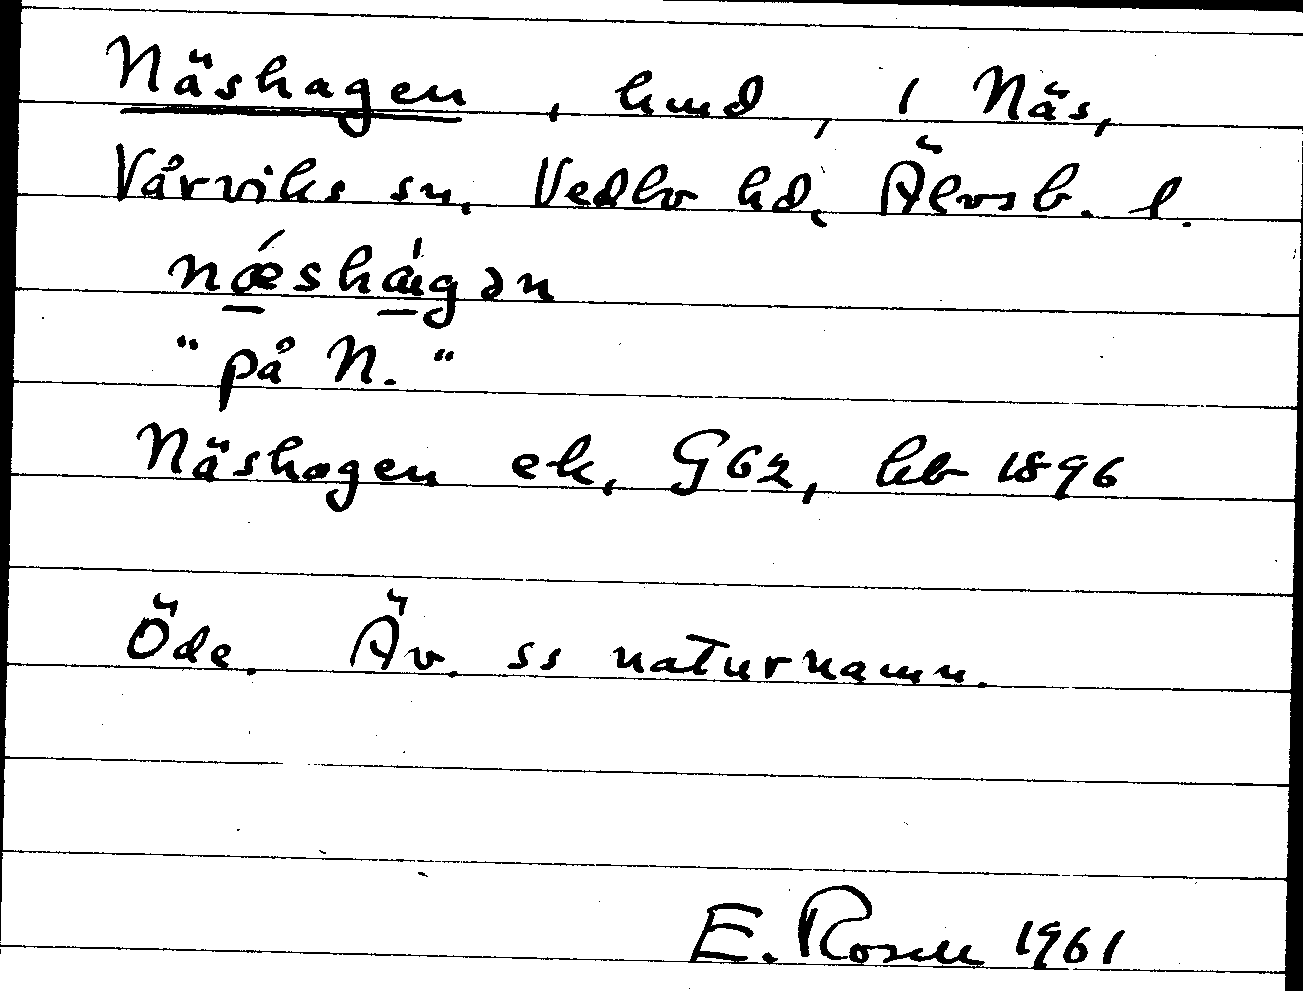 Näshagen, hmd, i Näs,
Vårviks sn, Vedbo hd, Älvsb. l.
nǽshágən
"på N."
Näshagen ek, G62, hb 1896
Öde. Äv. ss naturnamn.
E. Rosell 1961